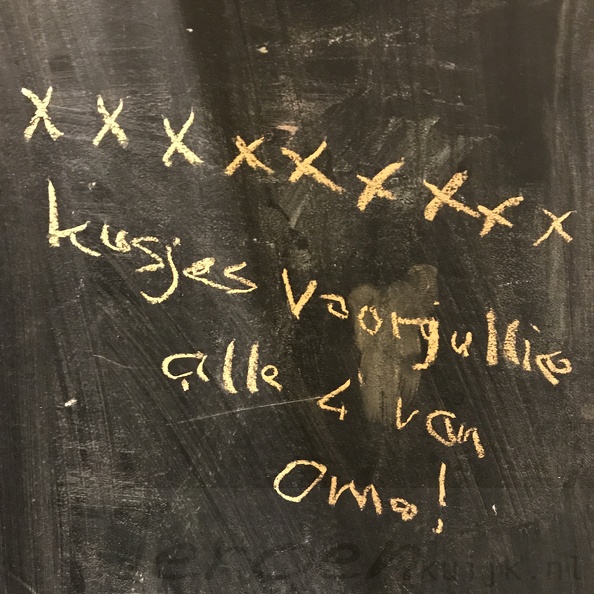 x x x x x x x x x
kusjes voor jullie
alle 4 van
oma!
jeroenkuijk.nl